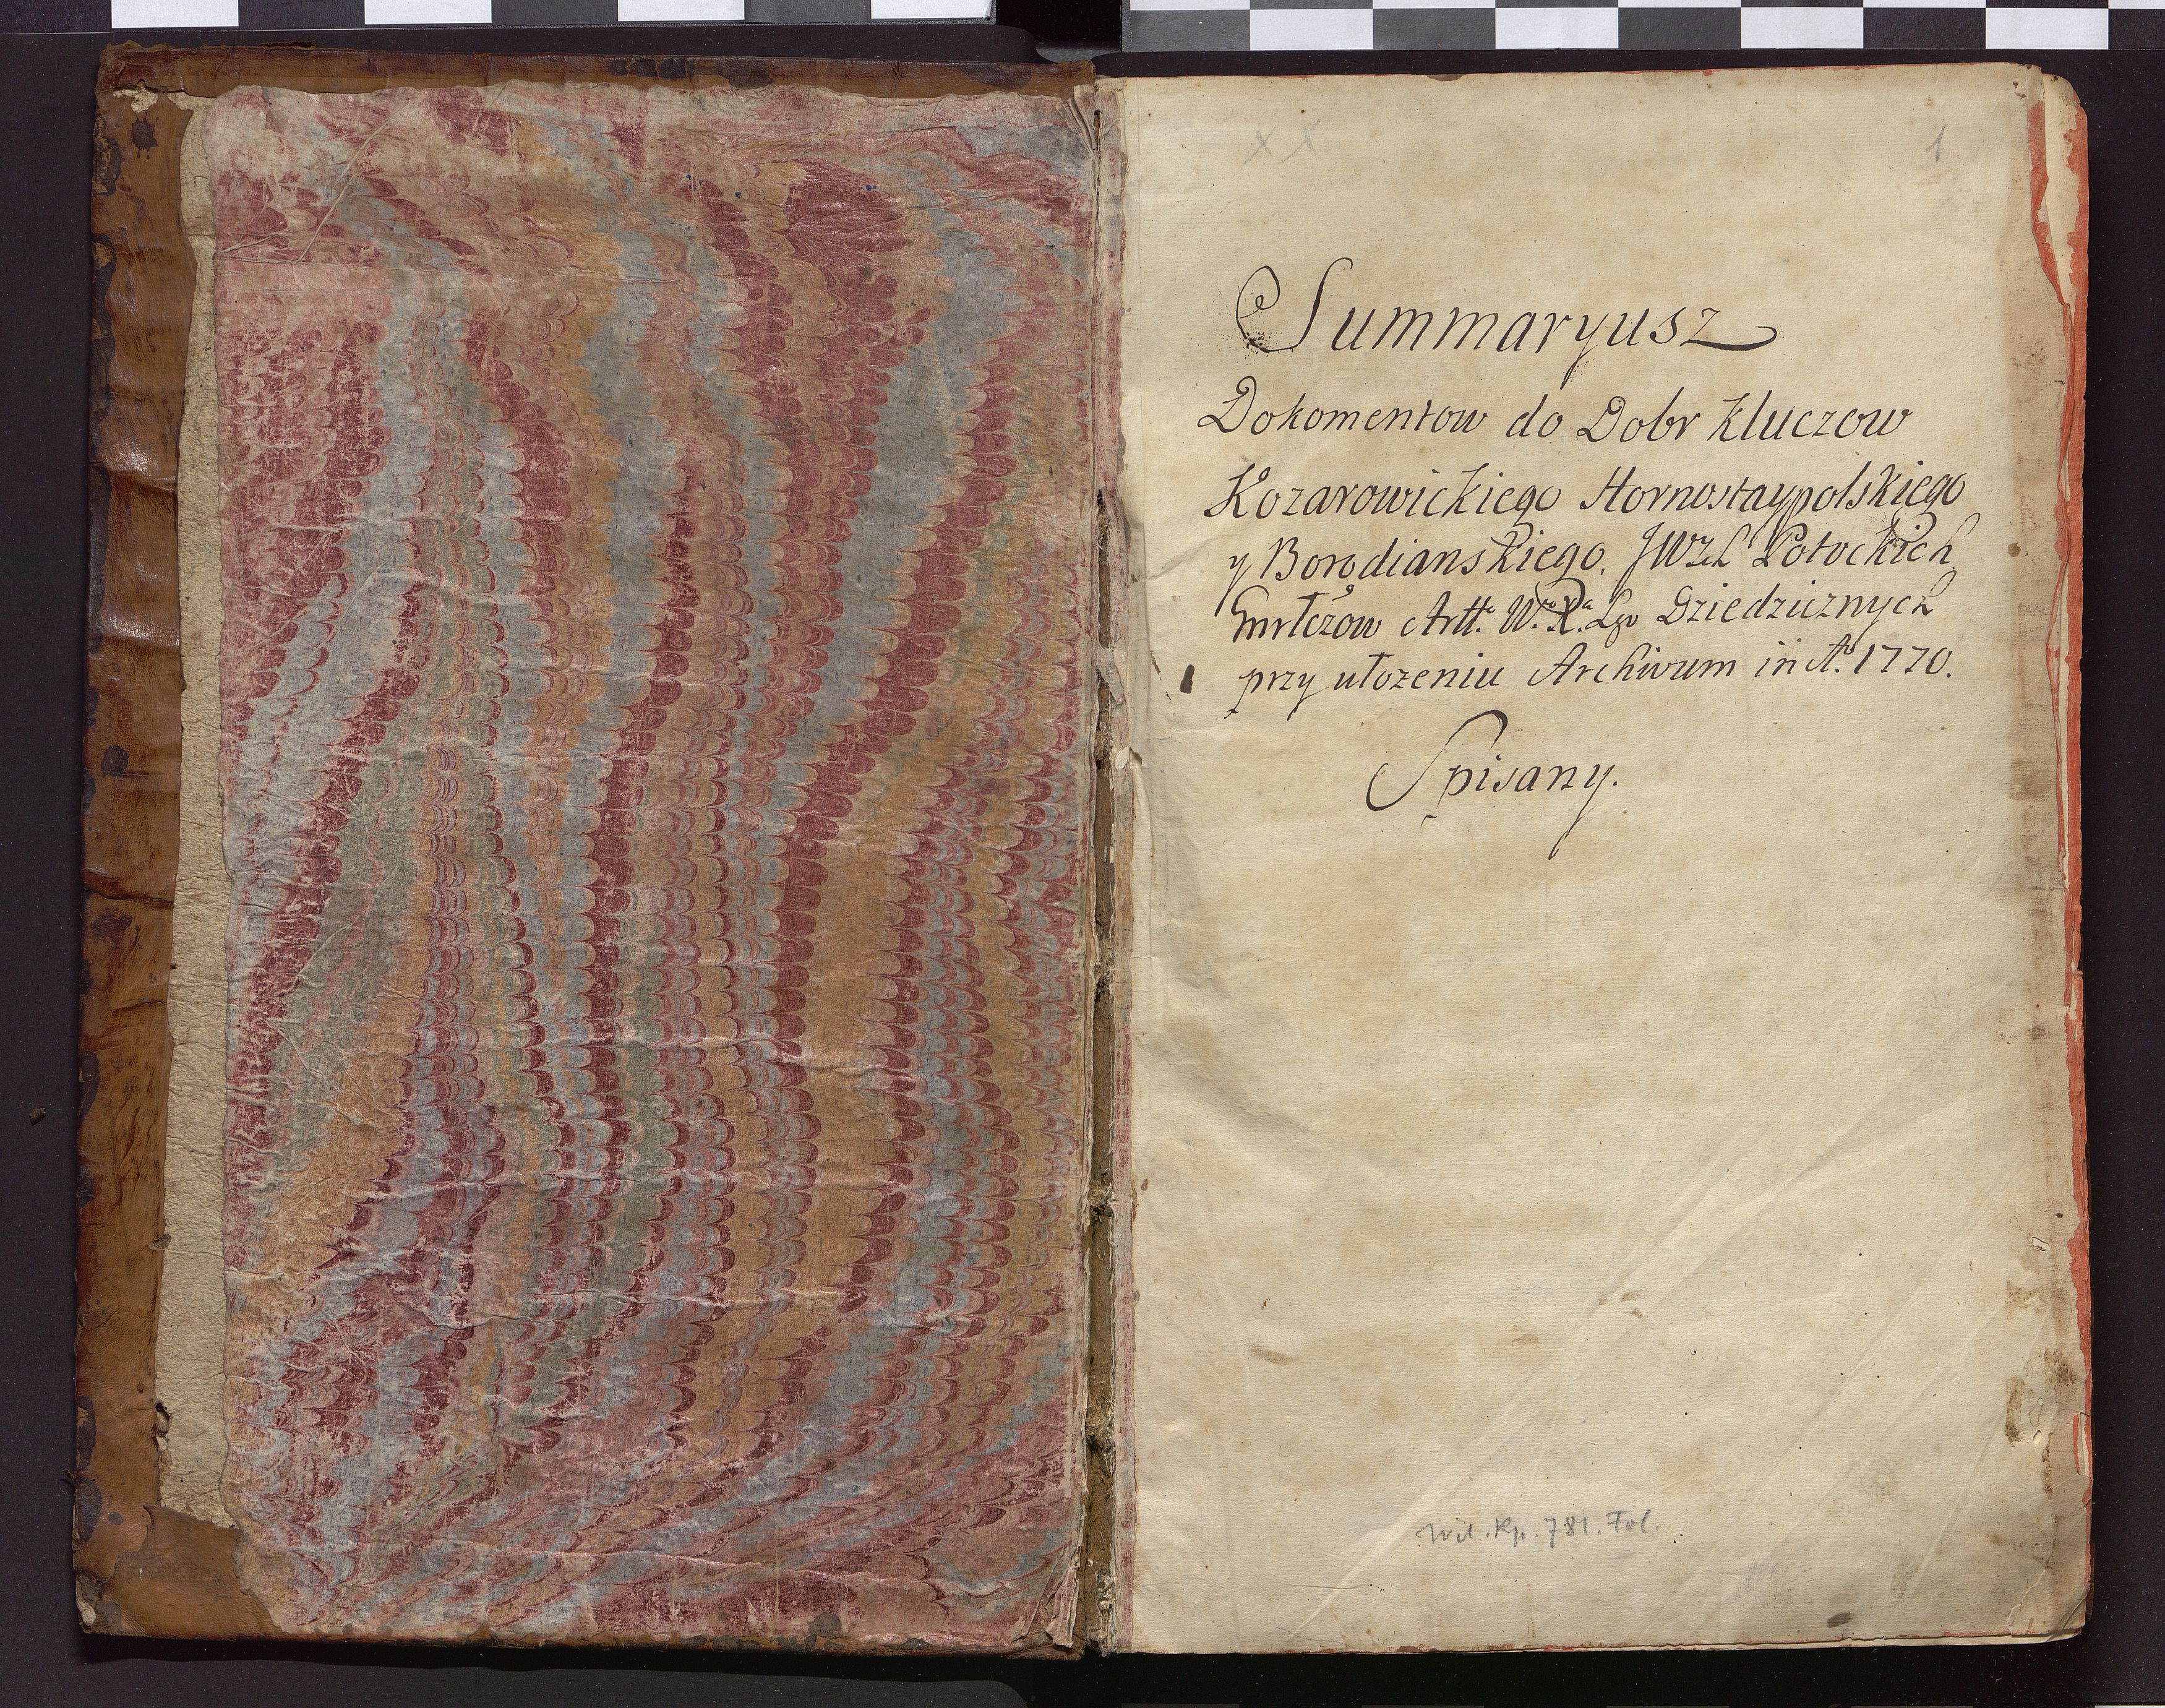 x x
1
Summaryusz
Dokomentow do Dobr Kluczow
Kozarowickiego Hornostaypolskiego
y Borodianskiego, JWch Potockich
Artt. W. X. Lgo Dziedzicznych
przy ułożeniu Archivum in Ao. 1770.
Spisany.
Wil. Kp. 781. Fol.